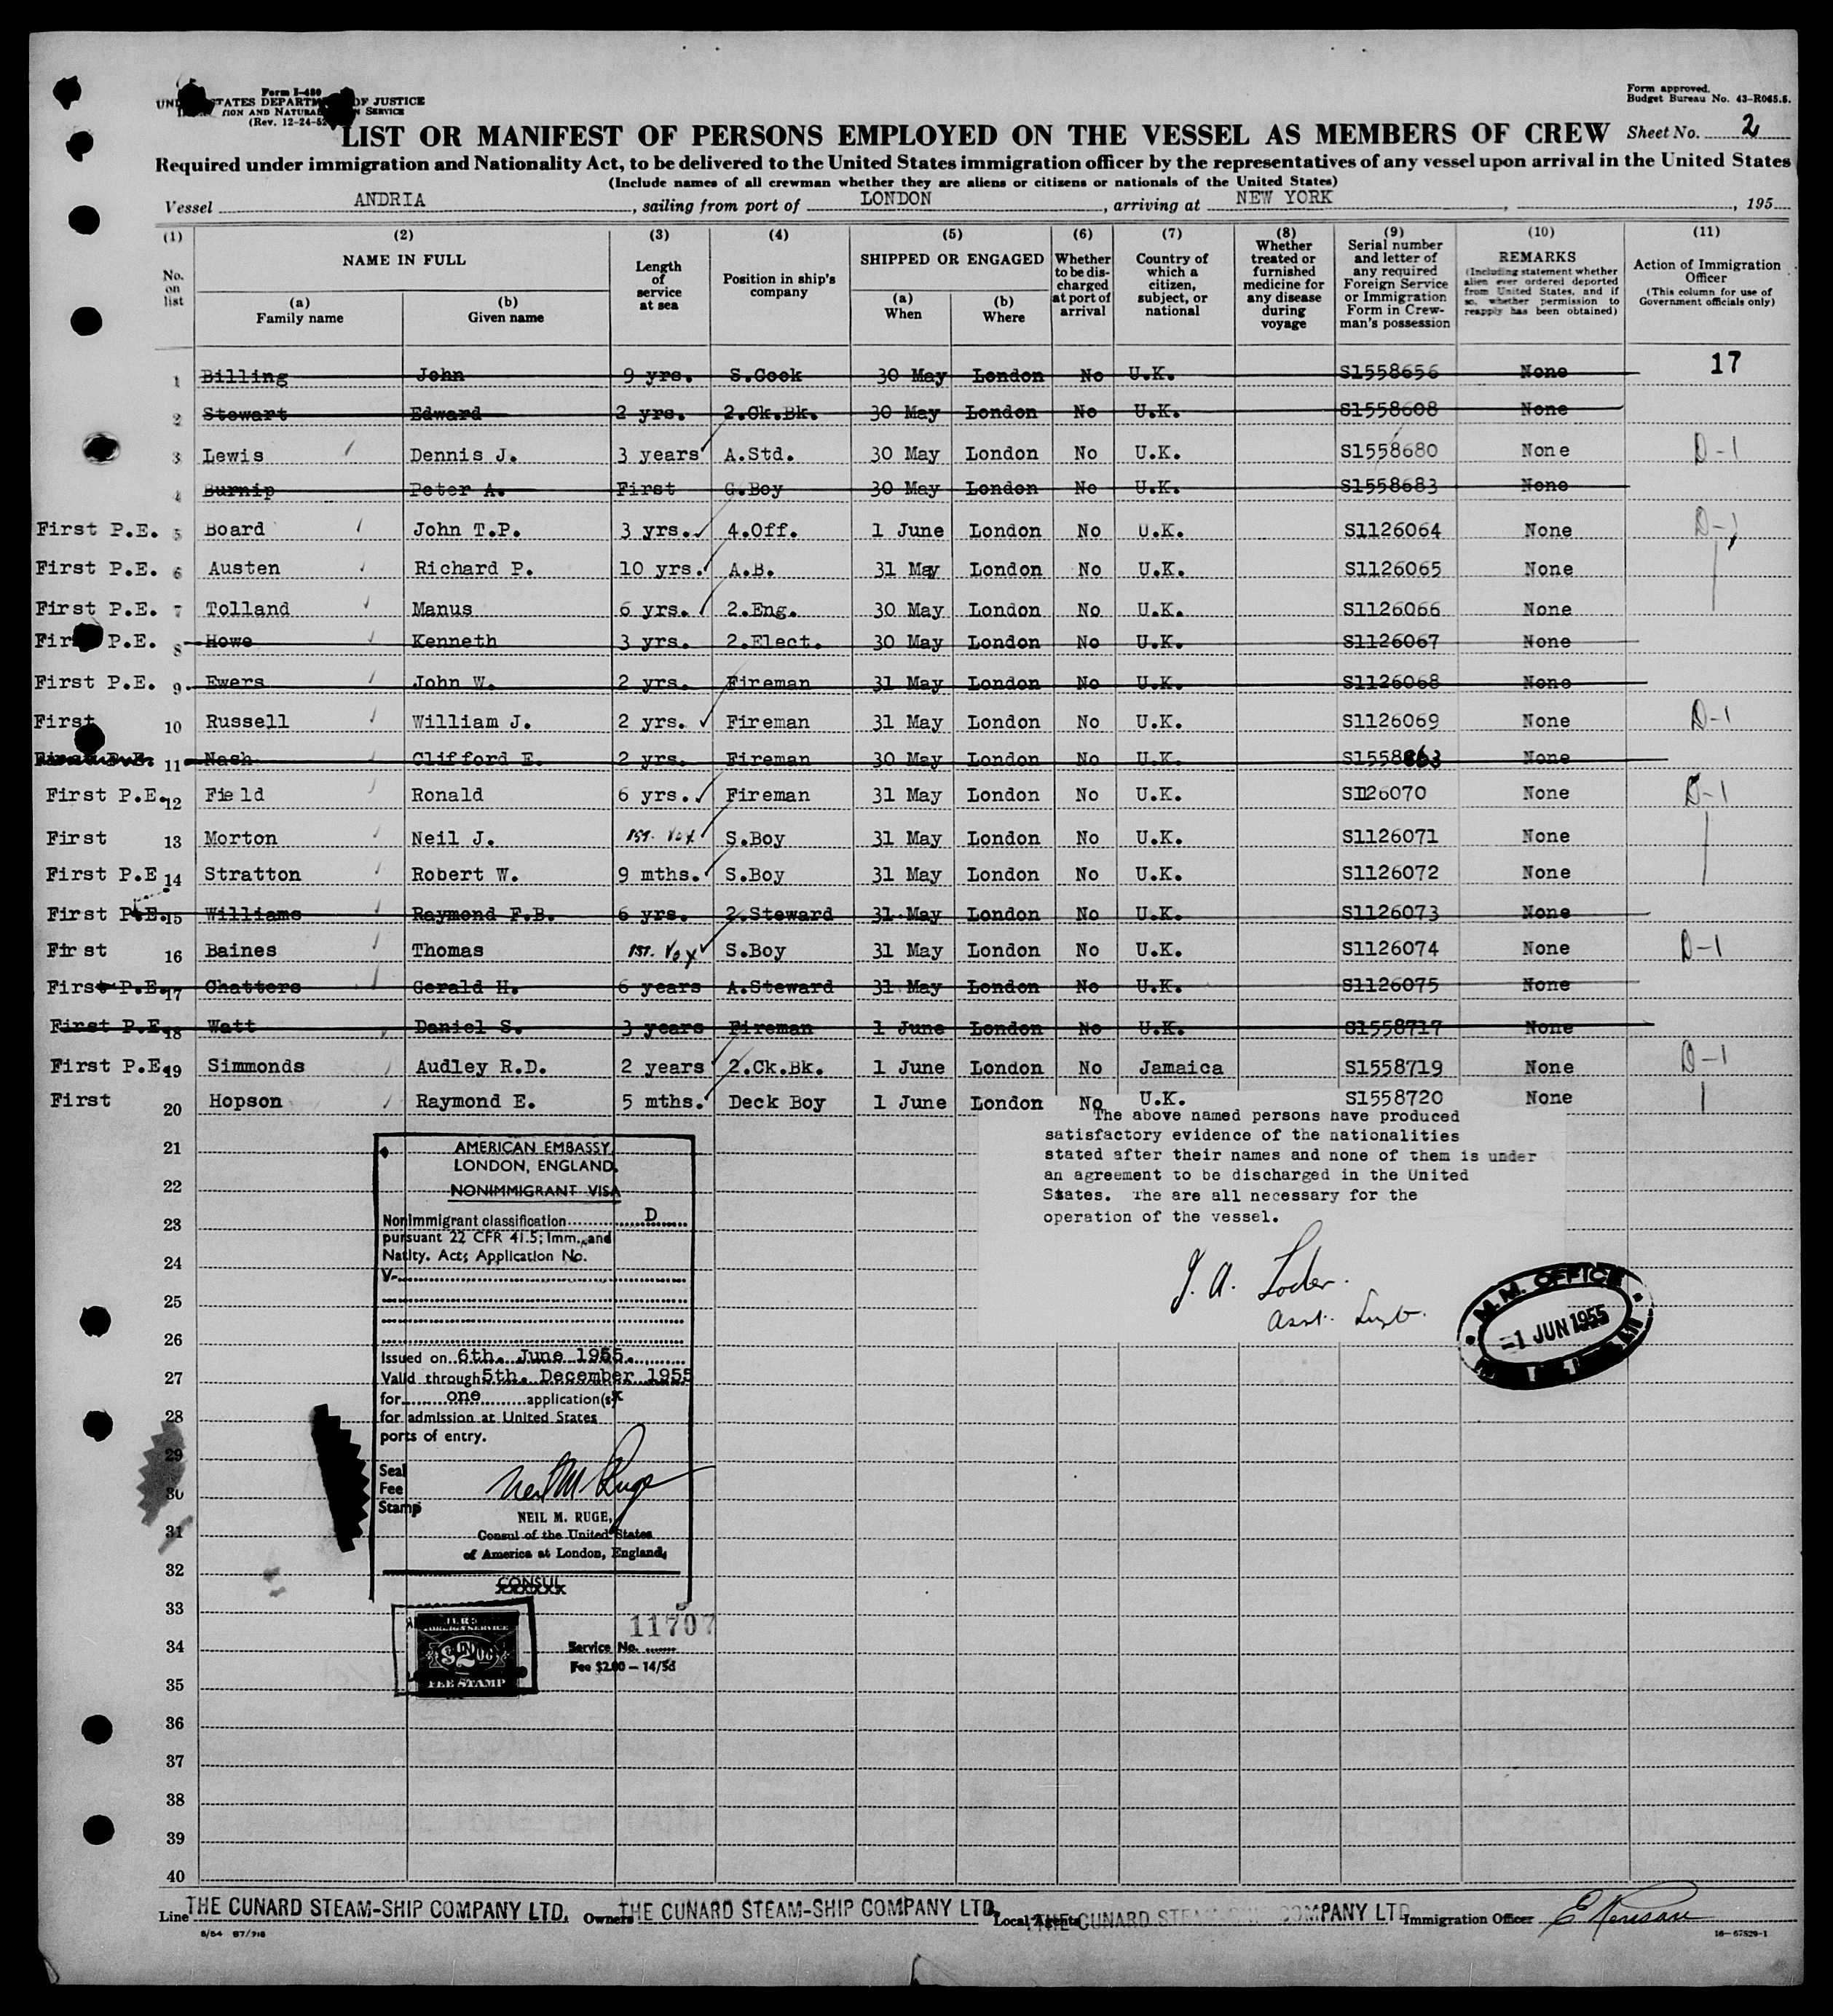 Form I-480
UNITED STATES DEPARTMENT OF JUSTICE
TION AND NATURAL SERVICE
(Rev. 12-24-52
Form approved.
Budget Bureau No. 43-R065.5.
LIST OR MANIFEST OF PERSONS EMPLOYED ON THE VESSEL AS MEMBERS OF CREW Sheet No. 2
Required under immigration and Nationality Act, to be delivered to the United States immigration officer by the representatives of any vessel upon arrival in the United States
(Include names of all crewman whether they are aliens or citizens or nationals of the United States)
Vessel ANDRIA, sailing from port of LONDON, arriving at NEW YORK, , 195
(1) (2) (3) (4) (5) (6) (7) (8) (9) (10) (11)
No. on list
NAME IN FULL
(a) Family name
(b) Given name
Length of service at sea
Position in ship's company
SHIPPED OR ENGAGED
(a) When
(b) Where
Whether to be discharged at port of arrival
Country of which a citizen, subject, or national
Whether treated or furnished medicine for any disease during voyage
Serial number and letter of any required Foreign Service or Immigration Form in Crewman's possession
REMARKS
(Including statement whether alien ever ordered deported from United States, and if so, whether permission to reapply has been obtained)
Action of Immigration Officer
(This column for use of Government officials only)
17
1 Billing John 9 yrs. S.Cook 30 May London No U.K. S1558656 None
2 Stewart Edward 2 yrs. 2.Ck.Bk. 30 May London No U.K. S1558608 None
3 Lewis Dennis J. 3 years A.Std. 30 May London No U.K. S1558680 None D-1
4 Burnip Peter A. First G.Boy 30 May London No U.K. S1558683 None
First P.E. 5 Board John T.P. 3 yrs. 4.Off. 1 June London No U.K. S1126064 None D-1
First P.E. 6 Austen Richard P. 10 yrs. A.B. 31 May London No U.K. S1126065 None
First P.E. 7 Tolland Manus 6 yrs. 2.Eng. 30 May London No U.K. S1126066 None
First P.E. 8 Howe Kenneth 3 yrs. 2.Elect. 30 May London No U.K. S1126067 None
First P.E. 9 Ewers John W. 2 yrs. Fireman 31 May London No U.K. S1126068 None
First 10 Russell William J. 2 yrs. Fireman 31 May London No U.K. S1126069 None D-1
11 Nash Clifford E. 2 yrs. Fireman 30 May London No U.K. S1558663 None
First P.E. 12 Field Ronald 6 yrs. Fireman 31 May London No U.K. S1126070 None D-1
First 13 Morton Neil J. 1st. Voy S.Boy 31 May London No U.K. S1126071 None
First P.E 14 Stratton Robert W. 9 mths. S.Boy 31 May London No U.K. S1126072 None
First P.E. 15 Williams Raymond F.B. 6 yrs. 2.Steward 31 May London No U.K. S1126073 None
First 16 Baines Thomas 1st. Voy S.Boy 31 May London No U.K. S1126074 None D-1
First P.E. 17 Chatters Gerald H. 6 years A.Steward 31 May London No U.K. S1126075 None
First P.E. 18 Watt Daniel S. 3 years Fireman 1 June London No U.K. S1558717 None
First P.E. 19 Simmonds Audley R.D. 2 years 2.Ck.Bk. 1 June London No Jamaica S1558719 None D-1
First 20 Hopson Raymond E. 5 mths. Deck Boy 1 June London No U.K. S1558720 None
The above named persons have produced
satisfactory evidence of the nationalities
stated after their names and none of them is under
an agreement to be discharged in the United
States. The are all necessary for the
operation of the vessel.
Asst. Supt.
M.M. OFFICE
-1 JUN 1955
21
22
23
24
25
26
27
28
29
30
31
32
33
34
35
36
37
38
39
40
AMERICAN EMBASSY
LONDON, ENGLAND.
NONIMMIGRANT VISA
Nonimmigrant classification D
pursuant 22 CFR 41.5; Imm. and
Natlty. Act; Application No.
V-
Issued on 6th. June 1955.
Valid through 5th. December 1955
for one application(s)
for admission at United States
ports of entry.
Seal
Fee
Stamp
Neil M Ruge
NEIL M. RUGE,
Consul of the United States
of America at London, England.
CONSUL
FOREIGN SERVICE
$2.00
FEE STAMP
11707
Service No.
Fee $2.00 - 14/58
Line THE CUNARD STEAM-SHIP COMPANY LTD. Owners THE CUNARD STEAM-SHIP COMPANY LTD. Local Agents THE CUNARD STEAM-SHIP COMPANY LTD Immigration Officer
5/54 87/718
16-67529-1